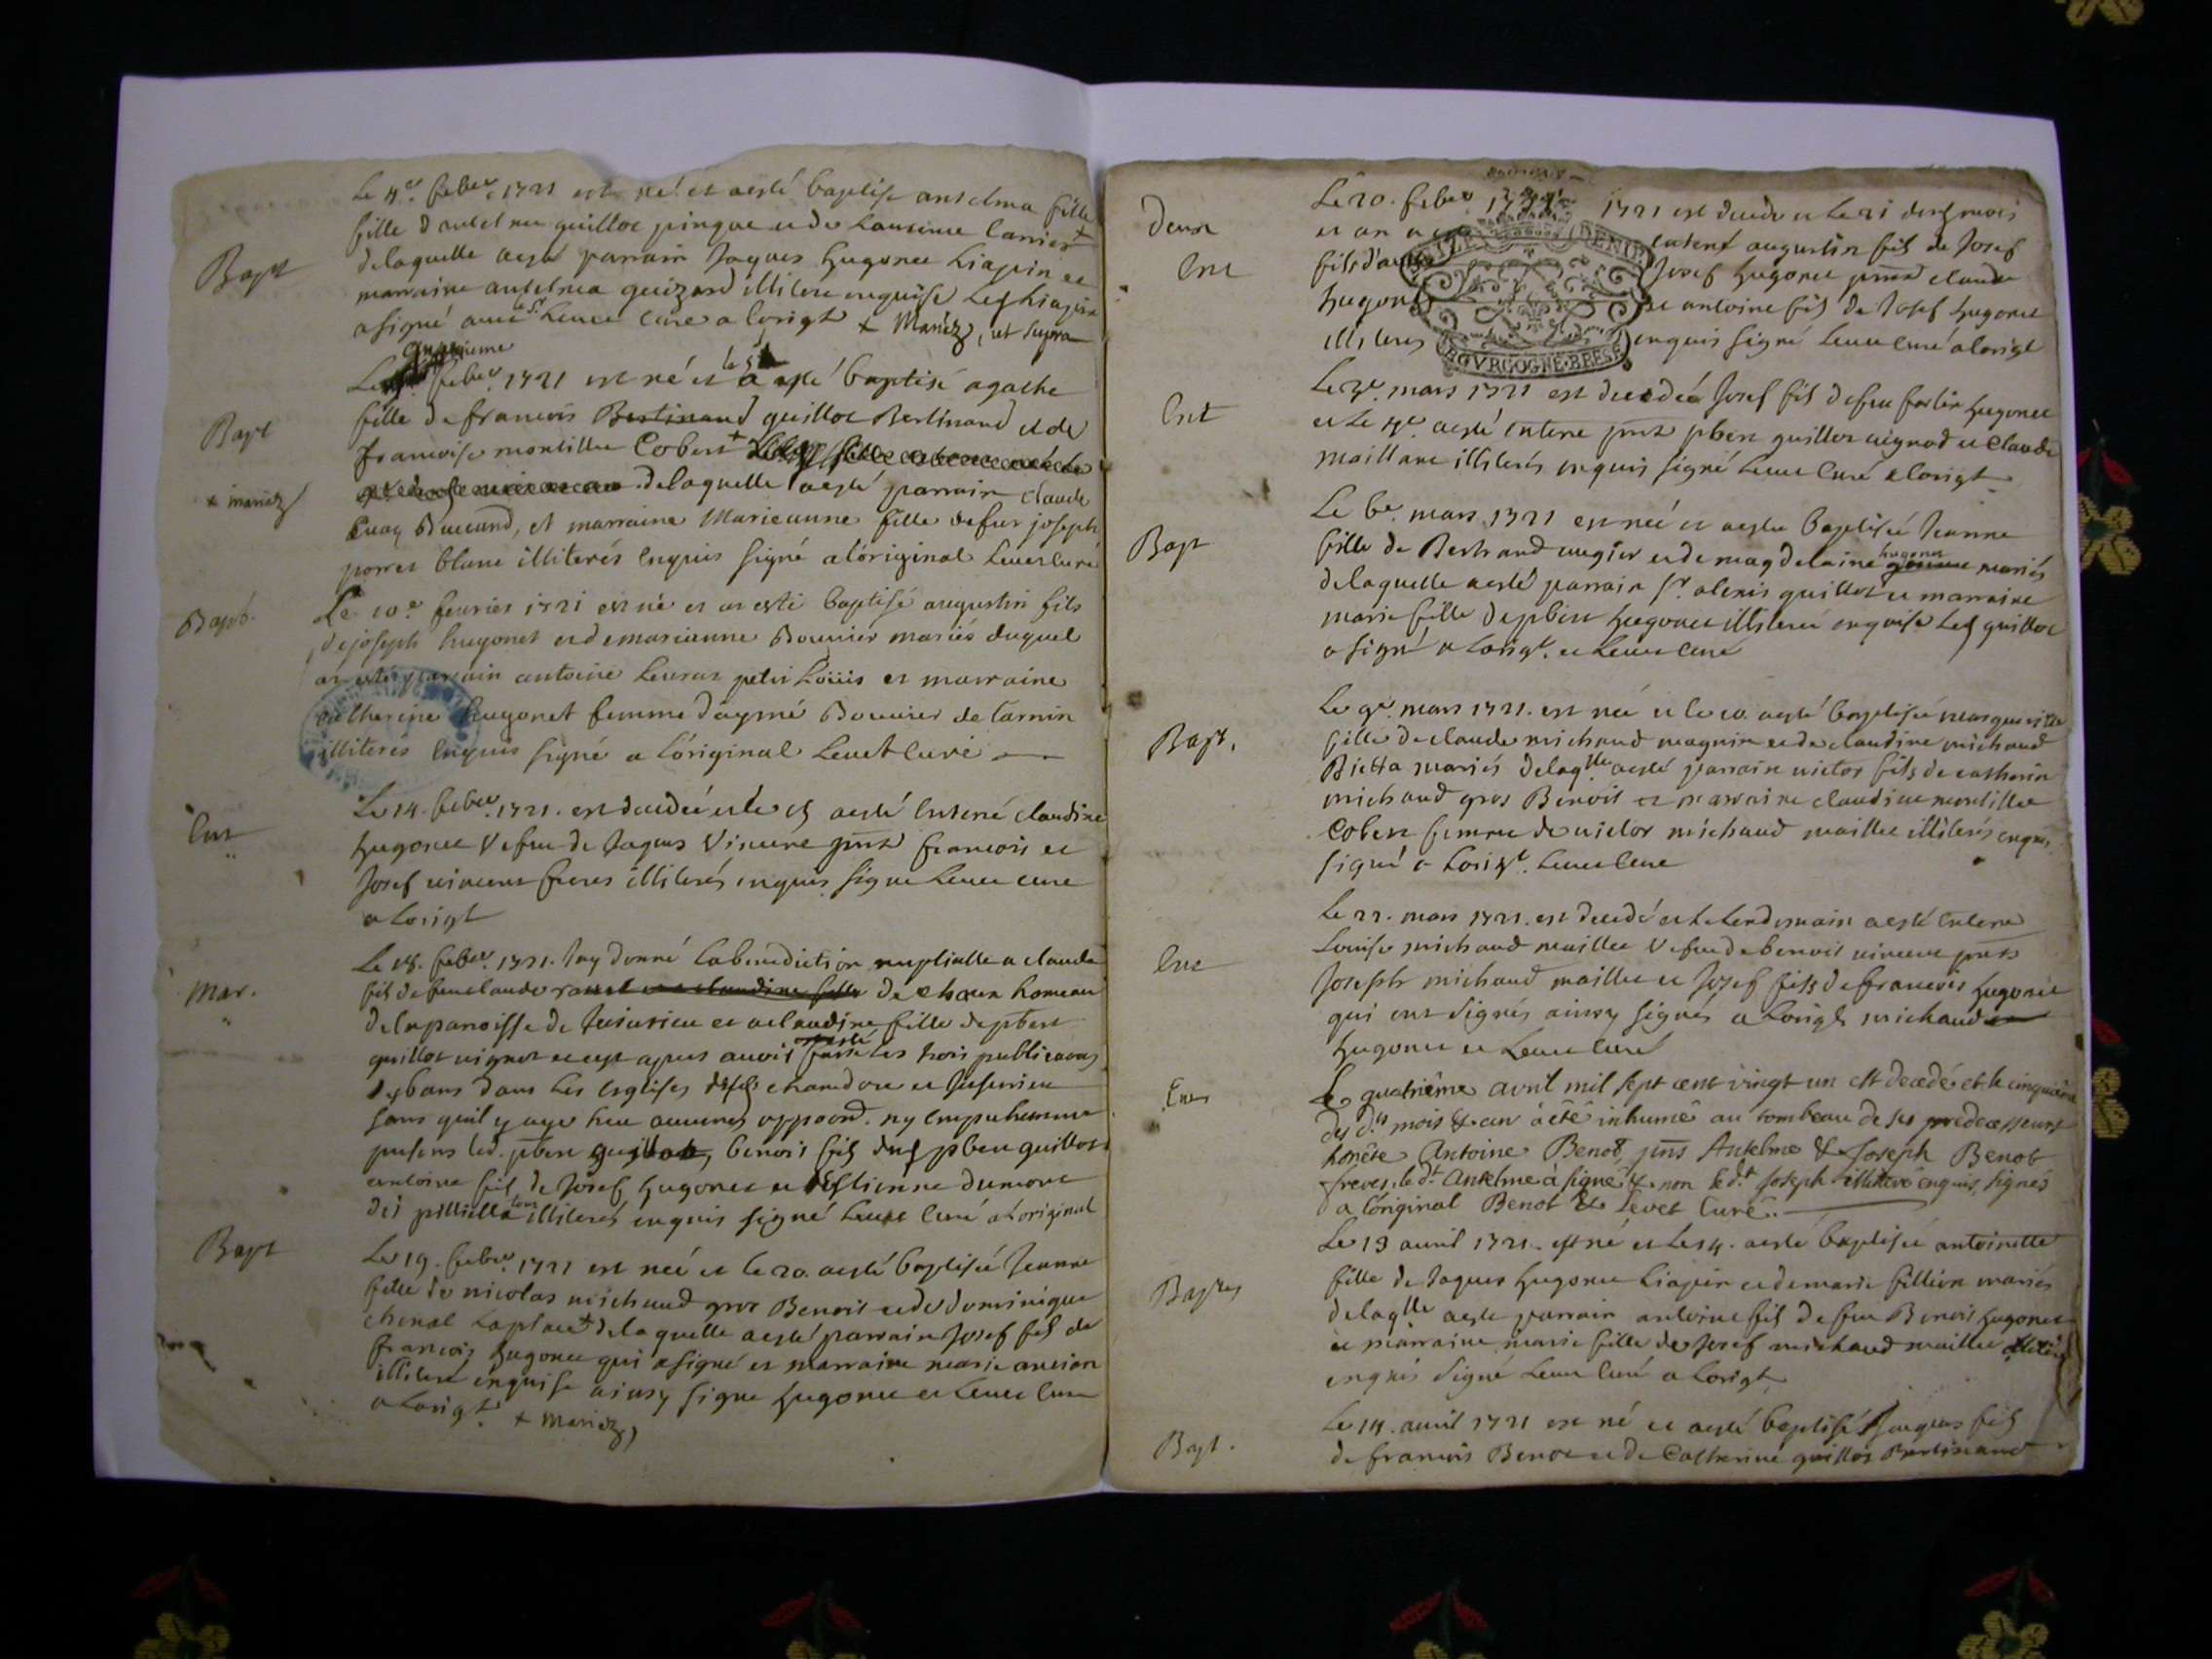 Le 4e. feber 1721 est né et a esté baptisé anselma fille
fille d'antelme guillot pingue et de
Bapt
delaquelle a esté parrain Jaques hugonet Liapin et
marraine antelma guizard illiteré enquise led Liapin
a signé avec le Sr Levet curé a lorigl + Mariez, ut supra
cinquieme
Le feber 1721 est né et le 5 a esté baptisé agathe
Bapt
fille de francois Bertinand guillot Bertinand et de
francoise montillet Cobert +
+ mariez
delaquelle a esté parrain claude
et marraine Marieanne fille de feu joseph
porret blanc illiterés enquis signé a lóriginal Levet curé
Bapt.
Le 10e feurier 1721 est né et at esté baptisé augustin fils
de joseph hugonet et de marieanne Bouuier mariés duquel
at esté parrain antoine Leurat petit Loüis et marraine
catherine hugonet femme d'aymé Bouuier de Carnin
illiterés enquis signé a lóriginal Levet curé
Ent
Le 14. feber. 1721. est decedée et le 15 a esté enterré claudine
hugonet Vefue de Jaques Vincent pnts francois et
Josef vincent freres illiterés enquis signé Levet curé
a Lorigl
Mar.
Le 18. feber. 1721. Jay donné la benediction nuptialle a claude
fils de feu claude ravet et a claudine fille de homeau
de la paroisse de Jusurieu et a claudine fille de pbert
guillot vignet et ce apres auoir faitte les trois publications
de bans dans les Esglises et Jusurieu
sans quil y aye heu aucunes opposon. ny empechement
presens led. pbert guillot, benoit fils dud pbert guillot
antoine fils de Josef hugonet et Estienne dumont
tous illiterés enquis signé Levet Curé a Loriginal
Bapt
Le 19. feber. 1721 est née et le 20. a esté baptisée Jeanne
fille de nicolas michaud gros Benoit et de dominique
chenal + delaquelle a esté parrain Josef fils de
francois hugonet qui a signé et marraine marie ancian
illiteré enquise ainsy signe hugonet et Levet curé
a Lorigl. + Mariez,
Le 20. feber 1721 1721 est decede et Le 21 desd mois
et an a esté enterré augustin fils de Josef
Ent
fils d'au Josef hugonet pnts claude
hugonet et antoine fils de Josef hugonet
illiteres enquis signé Levet curé a lorigl
MOYEN DENIER
BOVRGOGNE·BRESSE
Ent
Le 3e. mars 1721 est decedé Josef fils de feu hugonet
et Le 4e. a esté enterre pnts pbert guillot vignod et Claude
illiterés enquis signé Levet Curé a lorigt
Bapt
Le 6e. mars 1721 est née et a esté baptisée Jeanne
fille de Bertrand et de magdelaine hugonet mariés
delaquelle a esté parrain Sr. alexis guillot et marraine
marie fille de pbert hugonet illiteré enquise Led guillot
a signé a Lorigl. et Levet curé
Bapt,
Le 9e. mars 1721. est née et le 10. a esté baptisée marguerite
fille de claude michaud magnin et de claudine michaud
Bietta mariés delaqlle a esté parrain victor fils de catherin
michaud gros Benoit et marraine claudine montillet
Cobert femme de victor michaud maillet illiterés enquis
signé a Lorigl. Levet curé
Ent
Le 22. mars 1721. est decedé et le lendemain a esté enterré
Louise michaud maillet Vefue de benoit vincent pnts
Joseph michaud maillet et Josef fils de francois hugonet
qui ont signés ainsy signés a Lorigl michaud
hugonet et Levet curé
Ent
Le quatrième avril mil sept cent vingt un est decedé et le cinquième
des dts mois & an à été inhumé au tombeau de ses predecesseurs
honête Antoine Benot, pns Antelme & Joseph Benot
freres, le dt. Antelme à signé & non le dt. Joseph illiteré enquis, signés
à l'original Benot & Levet Curé.
Baptes
Le 13 auril 1721. est né et Le 14. a esté baptisée antoinette
fille de Jaques hugonet Liapin et de marie fillion mariés
delaqlle a esté parrain antoine fils de feu Benoit hugonet
et marraine marie fille de Josef michaud maillet
enquis signé Levet curé a Lorigl
Bapt.
Le 14. auril 1721 est né et a esté baptisé Jaques fils
de francois Benot et de Catherine guillot Bertinand